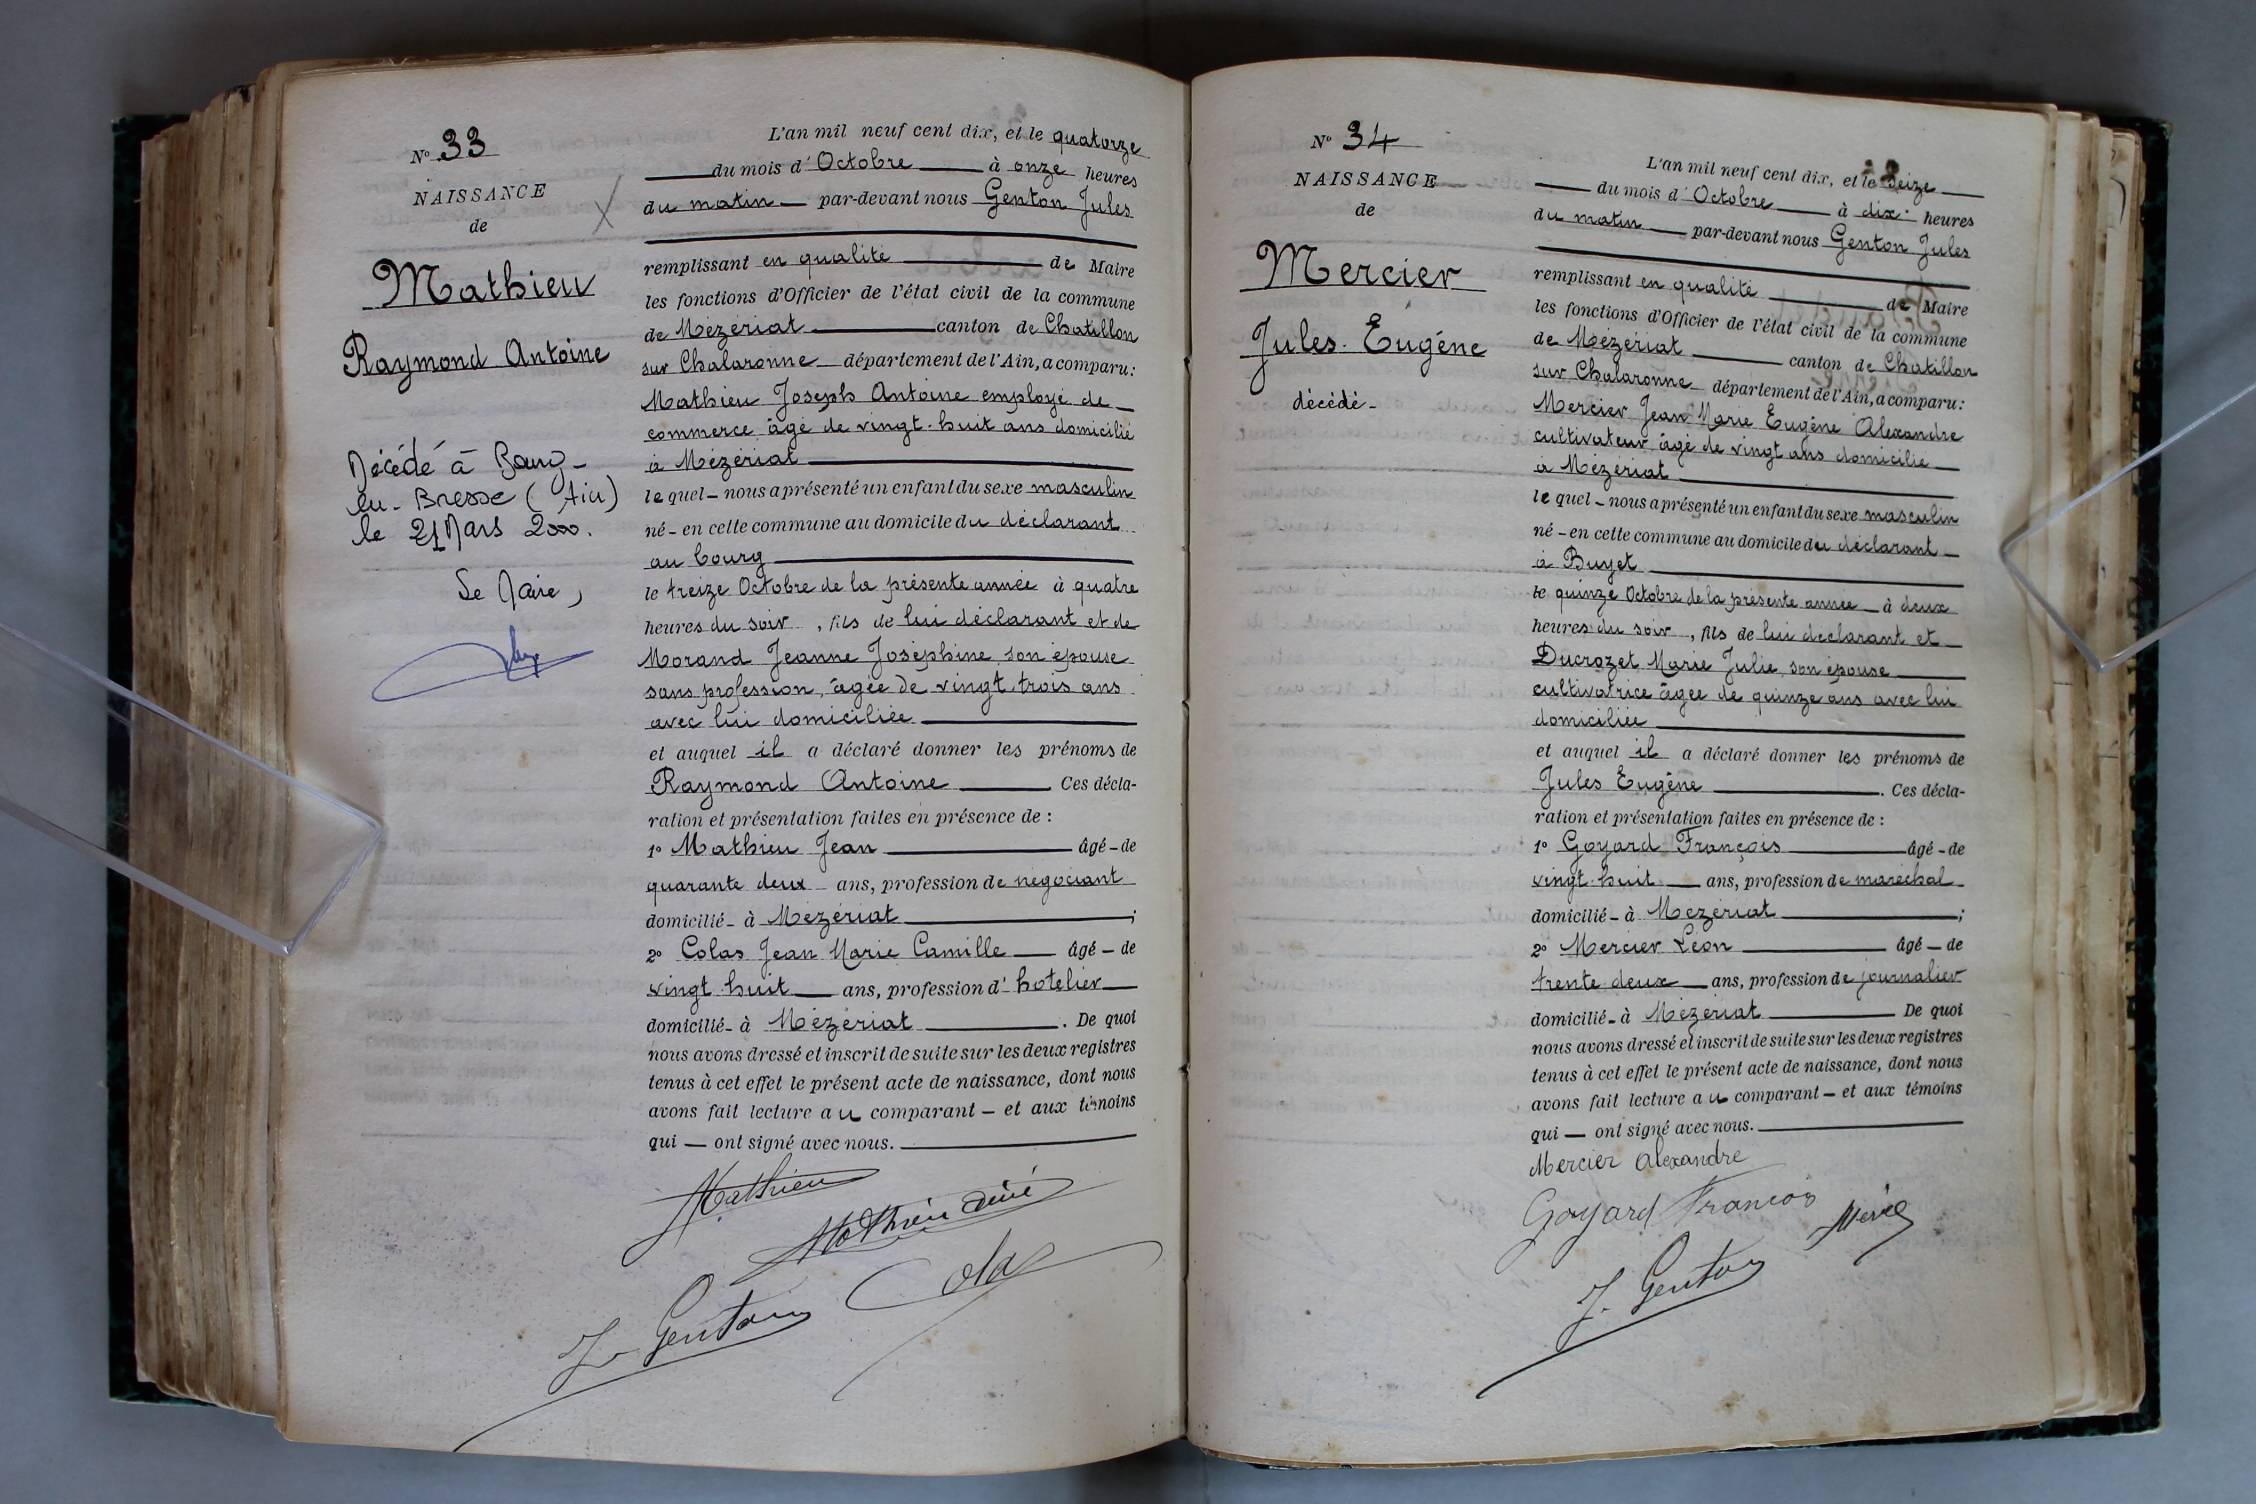 N° 33
NAISSANCE
de
Mathieu
Raymond Antoine
Décédé à Bourg-
en-Bresse (Ain)
le 21 Mars 2000.
Le Maire,
L'an mil neuf cent dix, et le quatorze
du mois d'Octobre à onze heures
du matin par-devant nous Genton Jules
remplissant en qualité de Maire
les fonctions d'Officier de l'état civil de la commune
de Mézériat canton de Chatillon
sur Chalaronne département de l'Ain, a comparu:
Mathieu Joseph Antoine employé de
commerce âgé de vingt-huit ans domicilié
à Mézériat
lequel nous a présenté un enfant du sexe masculin
né en cette commune au domicile du déclarant
au bourg
le treize Octobre de la présente année à quatre
heures du soir, fils de lui déclarant et de
Morand Jeanne Joséphine son épouse
sans profession, âgée de vingt trois ans
avec lui domiciliée
et auquel il a déclaré donner les prénoms de
Raymond Antoine Ces décla-
ration et présentation faites en présence de :
1° Mathieu Jean âgé de
quarante deux ans, profession de négociant
domicilié à Mézériat ;
2° Colas Jean Marie Camille âgé de
vingt huit ans, profession d'hotelier
domicilié à Mézériat . De quoi
nous avons dressé et inscrit de suite sur les deux registres
tenus à cet effet le présent acte de naissance, dont nous
avons fait lecture au comparant et aux témoins
qui ont signé avec nous.
Mathieu
Mathieu aîné
Colas
J. Genton
N° 34
NAISSANCE
de
Mercier
Jules Eugène
décédé
L'an mil neuf cent dix, et le seize
du mois d'Octobre à dix heures
du matin par-devant nous Genton Jules
remplissant en qualité de Maire
les fonctions d'Officier de l'état civil de la commune
de Mézériat canton de Chatillon
sur Chalaronne département de l'Ain, a comparu:
Mercier Jean Marie Eugène Alexandre
cultivateur âgé de vingt ans domicilié
à Mézériat
lequel nous a présenté un enfant du sexe masculin
né en cette commune au domicile du déclarant
à Buyet
le quinze Octobre de la présente année à deux
heures du soir, fils de lui déclarant et
Ducrozet Marie Julie son épouse
cultivatrice âgée de quinze ans avec lui
domiciliée
et auquel il a déclaré donner les prénoms de
Jules Eugène . Ces décla-
ration et présentation faites en présence de :
1° Goyard François âgé de
vingt-huit ans, profession de maréchal
domicilié à Mézériat ;
2° Mercier Léon âgé de
trente deux ans, profession de journalier
domicilié à Mézériat De quoi
nous avons dressé et inscrit de suite sur les deux registres
tenus à cet effet le présent acte de naissance, dont nous
avons fait lecture au comparant et aux témoins
qui ont signé avec nous.
Mercier Alexandre
Goyard François
J. Genton